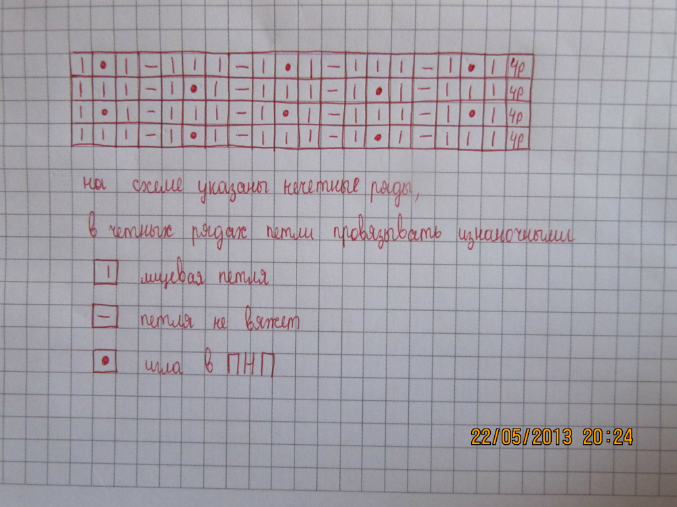 | • | – | | | – | • | – | | | – | • | 4р
| | | – | • | – | | | – | • | – | | | 4р
| • | – | | | – | • | – | | | – | • | 4р
| | | – | • | – | | | – | • | – | | | 4р
на схеме указаны нечетные ряды,
в четных рядах петли провязывать изнаночными
| лицевая петля
– петля не вяжет
• игла в ПНП
22/05/2013 20:24